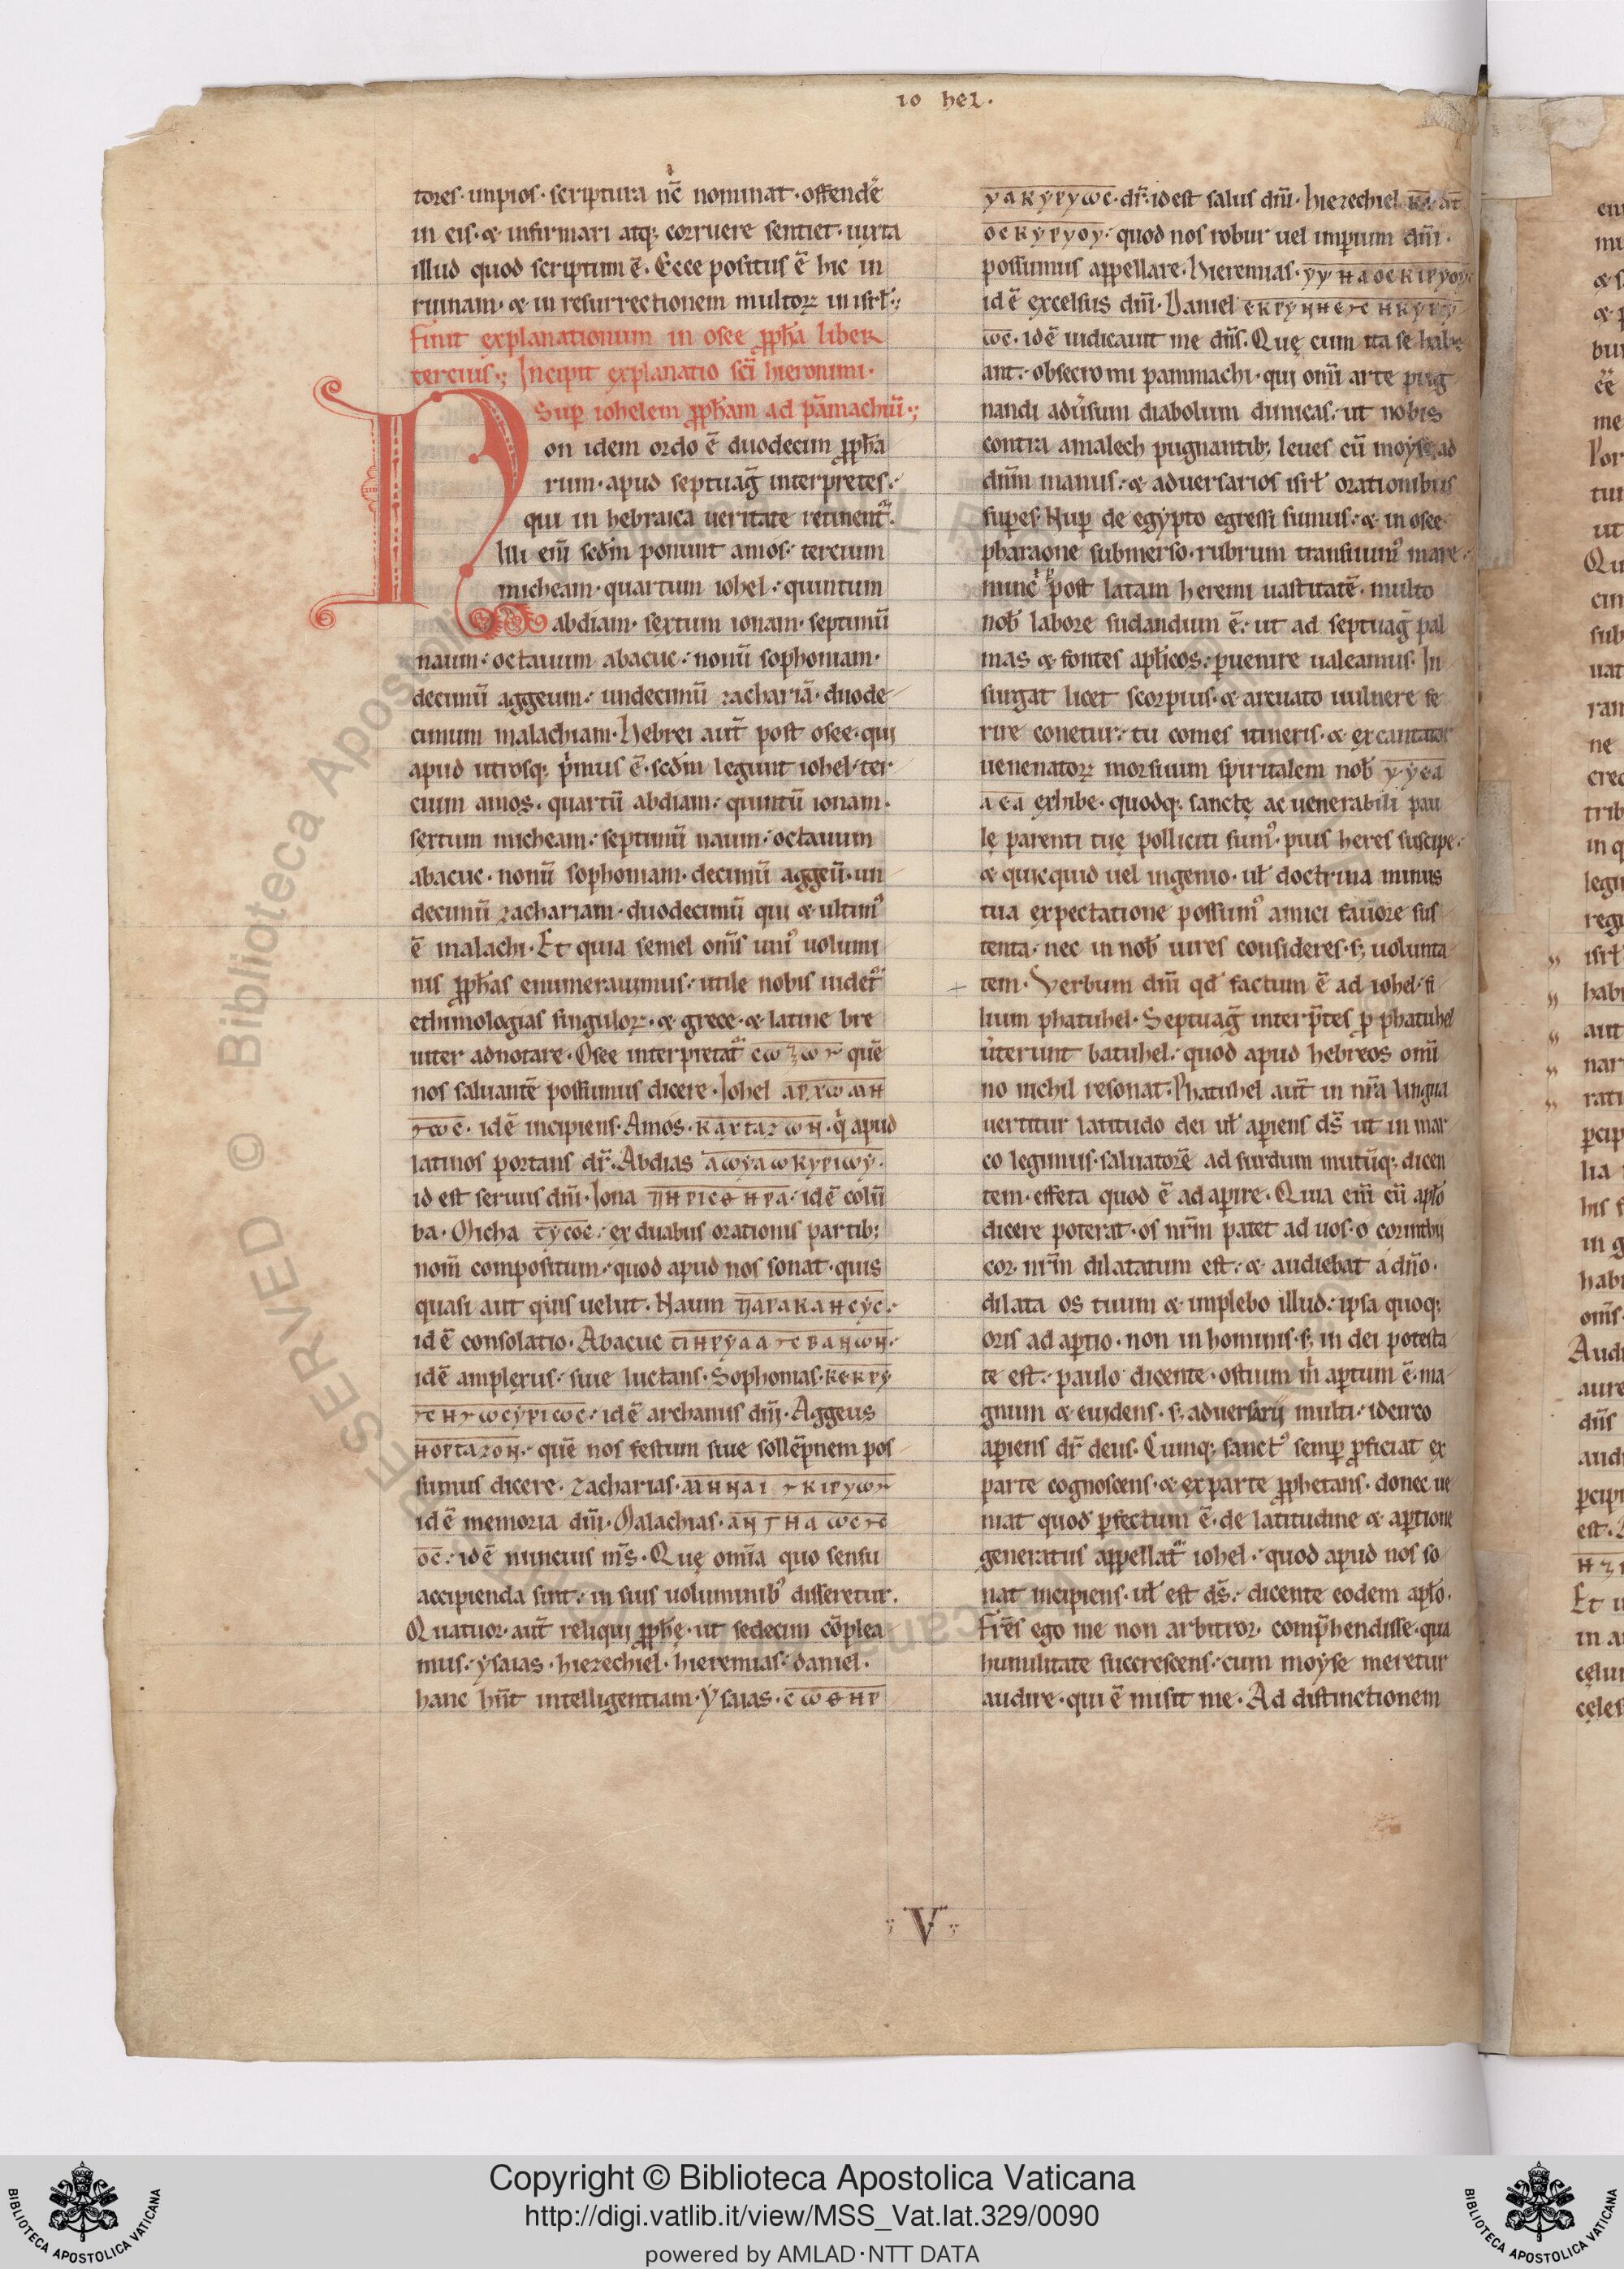 10 hel.
tores. impios. scriptura nc̄ nominat. offendē
in eis. & infirmari atq; corruere sentiet. iuxta
illud quod scriptum ē. Ecce positus ē hic in
ruinam. & in resurrectionem multoꝝ in isrł.
finit explanationum in osee ꝓph̄a liber
tercius. Incipit explanatio sc̄i hieronimi.
Sup iohelem ꝓph̄am ad pāmachiū.
Non idem ordo ē duodecim ꝓph̄a
rum. apud septuaḡ interpretes.
qui in hebraica ueritate retinent᷑.
Illi eni̅ scd̄m ponunt amos. tercium
micheam. quartum iohel. quintum
abdiam. sextum ionam. septimū
naum. octauum abacuc. nonū sophoniam.
decimū aggeum. undecimū zachariā. duode
cimum malachiam. Hebrei aut̄ post osee. qui
apud utrosq; p̄mus ē. scd̄m legunt iohel. ter
cium amos. quartū abdiam. quintū ionam.
sextum micheam. septimū naum. octauum
abacuc. nonū sophoniam. decimū aggeū. un
decimū zachariam. duodecimū qui & ultimꝰ
ē malachi. Et quia semel om̄s uniꝰ uolumi
nis ꝓph̄as enumerauimus. utile nobis uidet᷑
ethimologias singuloꝝ. & grece. & latine bre
uiter adnotare. Osee interpretat᷑ cωζωr quē
nos saluantē possumus dicere. Iohel
idē incipiens. Amos. q̇ apud
latinos portans dr̄. Abdias
id est seruus dn̄i. Iona idē colū
ba. Micha ex duabus orationis partib;
nom̄ compositum. quod apud nos sonat. quis
quasi aut q̇uis uelut. Naum
idē consolatio. Abacuc
idē amplexus. siue luctans. Sophonias.
idē archanus dn̄i. Aggeus
quē nos festum siue sollēpnem pos
sumus dicere. Zacharias.
idē memoria dn̄i. Malachias.
idē nuncius m̄s. Quę om̄ia quo sensu
accipienda sint. in suis uoluminibꝰ disseretur.
Quatuor. aut̄ reliqui ꝓph̄ę. ut sedecim cōplea
mus. ysaias. hiezechiel. hieremias. daniel.
hanc hn̄t intelligentiam. Ysaias.
dr̄. id est salus dn̄i. Hiezechiel
quod nos robur uel imperium dn̄i.
possumus appellare. Hieremias.
id ē excelsus dn̄i. Daniel
idē iudicauit me dn̄s. Quę cum ita se habe
ant. obsecro mi pammachi. qui om̄i arte pug
nandi adu̇sum diabolum dimicas. ut nobis
contra amalech pugnantib; leues cū moyse ad
dn̄m manus. & aduersarios isrł orationibus
supes. Nup de egypto egressi sumus. & in osee
pharaone submerso. rubrum transiuimꝰ mare.
nunc post latam heremi uastitatē. multo
nob̄ labore sudandum ē. ut ad septuaḡ pal
mas & fontes apl̄icos. puenire ualeamus. In
surgat licet scorpius. & arcuato uulnere fe
rire conetur. tu comes itineris. & excantator
uenenatoꝝ morsuum spiritalem nob̄
exhibe. quodq; sanctę ac uenerabili pau
lę parenti tuę polliciti sumꝰ. pius heres suscipe.
& quicquid uel ingenio. ul̄ doctrina minus
tua expectatione possumꝰ amici fauore sus
tenta. nec in nob̄ uires consideres. s; uolunta
tem. Verbum dn̄i qd̄ factum ē ad iohel. fi
lium phatuhel. Septuaḡ interp̄tes ꝑ phatuhel
u̇terunt batuhel. quod apud hebreos omi
no nichil resonat. Phatuhel aut̄ in nr̄a lingua
uertitur latitudo dei ul̄ apiens ds̄ ut in mar
co legimus. saluatorē ad surdum mutūq; dicen
tem. effeta quod ē ad apire. Quia eni̅ cū apl̄o
dicere poterat. os nr̄m patet ad uos. o corinthii
cor. nr̄m dilatatum est. & audiebat a dn̄o.
dilata os tuum & implebo illud. ipsa quoq;
oris ad aptio. non in hominis. s; in dei potesta
te est. paulo dicente. ostium m̄ aptum ē. ma
gnum & euidens. s; aduersarii multi. idcirco
apiens dr̄ deus. Cumq; sanctꝰ semp ꝓficiat ex
parte cognoscens. & ex parte ꝓphetans. donec ue
niat quod pfectum ē. de latitudine & aptione
generatus appellat᷑ iohel. quod apud nos so
nat incipiens. ul̄ est ds̄. dicente eodem apl̄o.
Fr̄es ego me non arbitror. compħendisse. qua
humilitate succrescens. cum moyse meretur
audire. qui ē misit me. Ad distinctionem
V
Copyright © Biblioteca Apostolica Vaticana
http://digi.vatlib.it/view/MSS_Vat.lat.329/0090
powered by AMLAD·NTT DATA
BIBLIOTECA APOSTOLICA VATICANA
BIBLIOTECA APOSTOLICA VATICANA